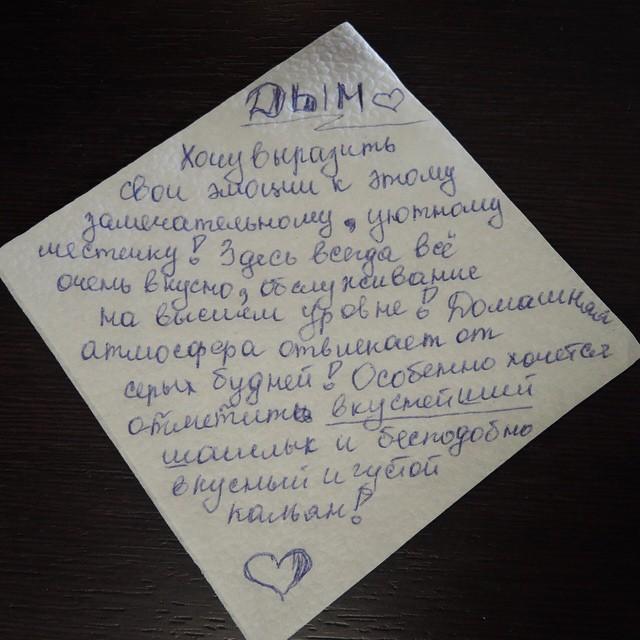 ДЫМ
Хочу выразить
свои эмоции к этому
замечательному, уютному
местечку! Здесь всегда всё
очень вкусно, обслуживание
на высшем уровне! Домашняя
атмосфера отвлекает от
серых будней! Особенно хочется
отметить вкуснейший
шашлык и бесподобно
вкусный и густой
кальян!